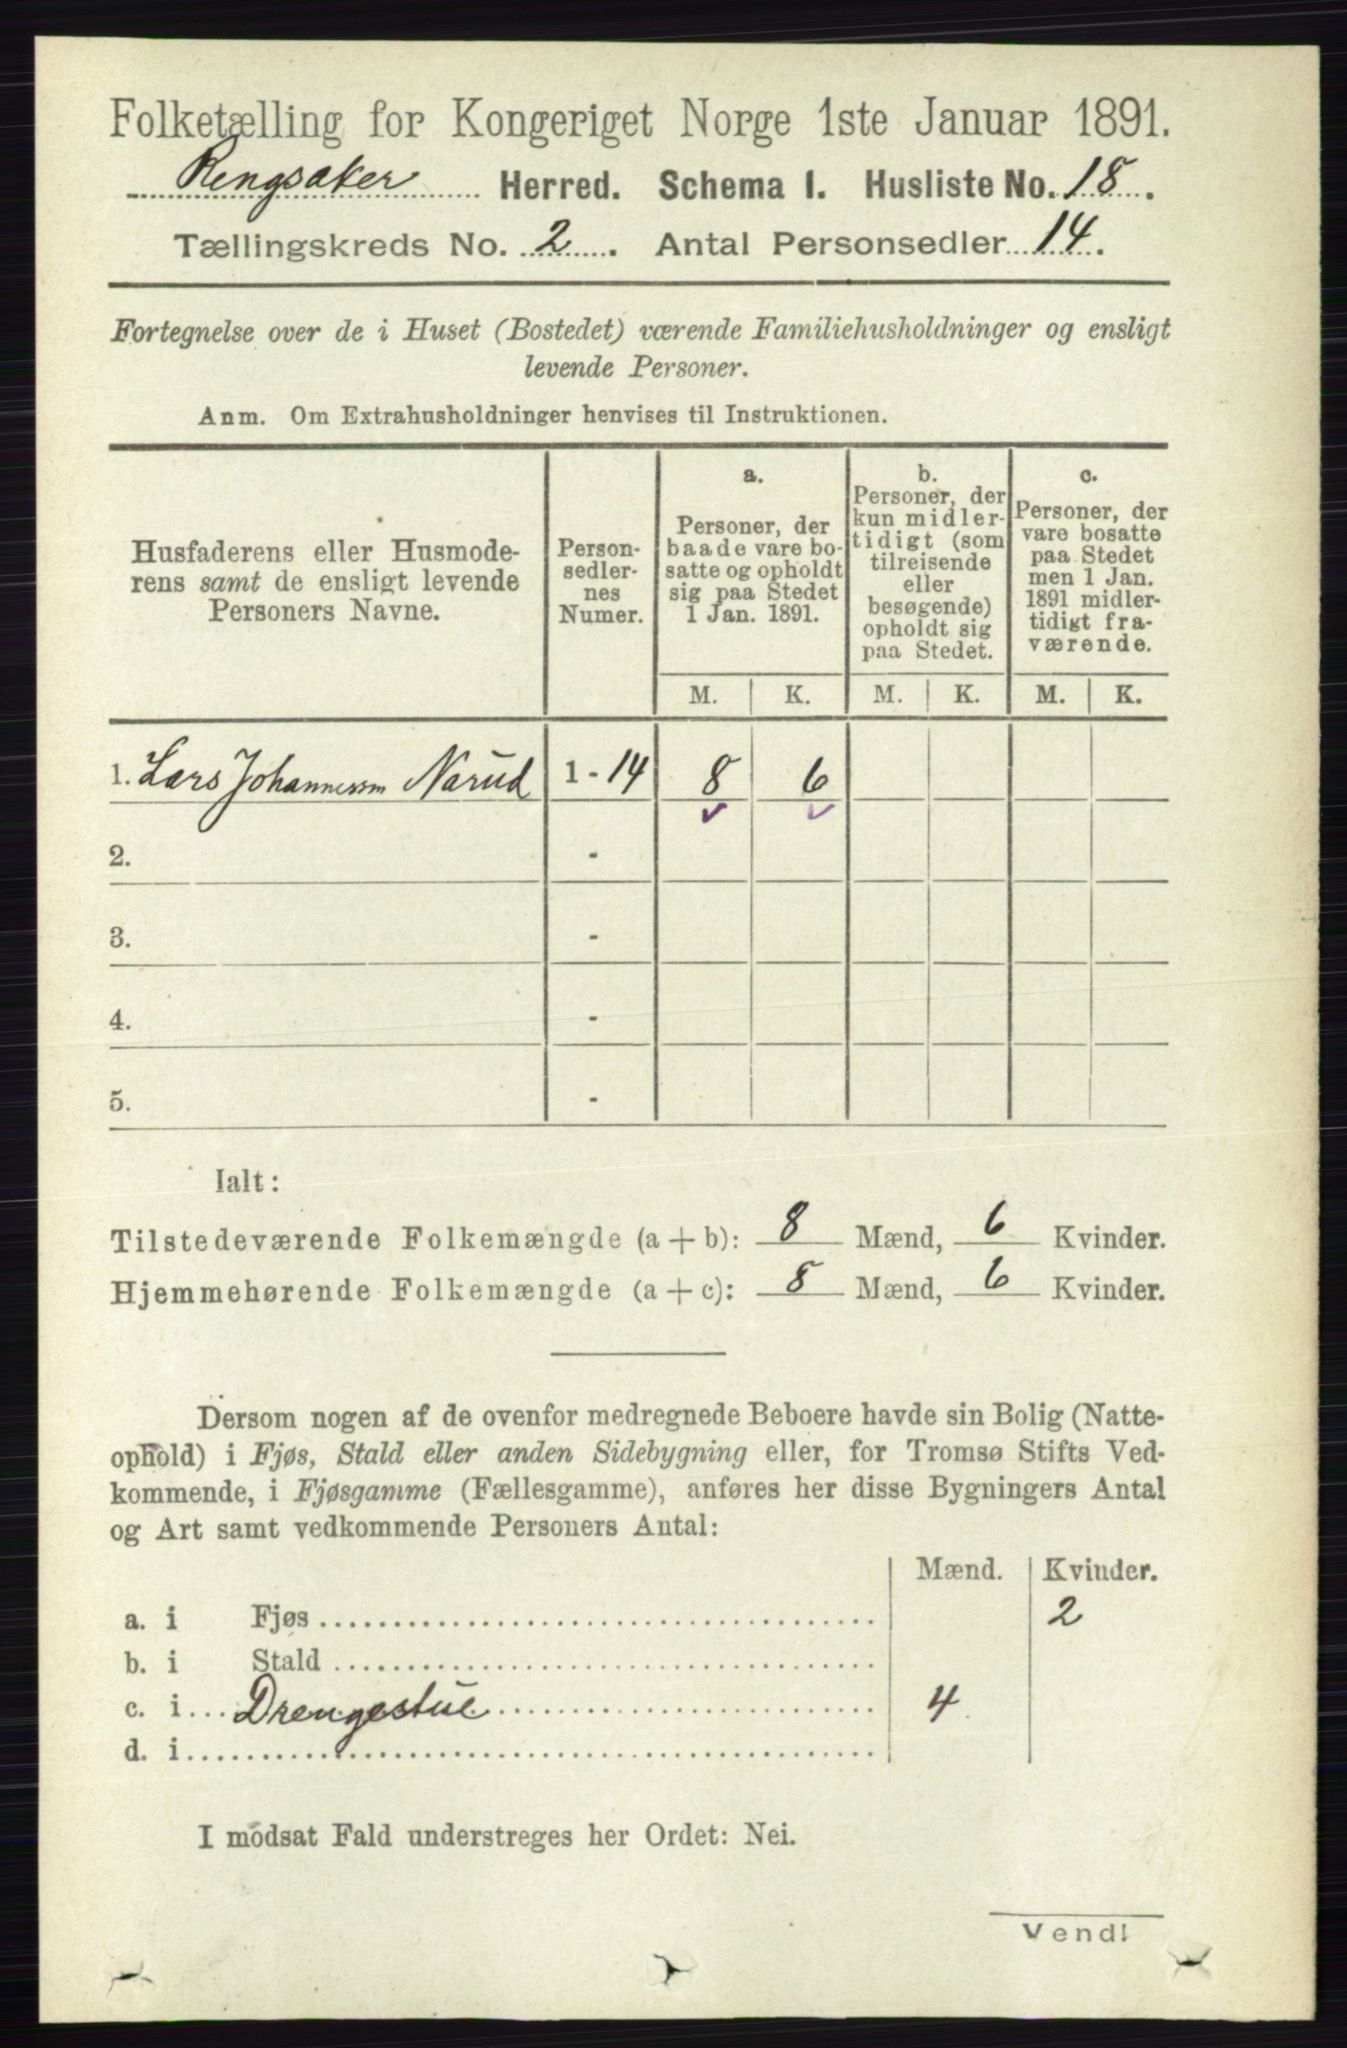 Folketælling for Kongeriget Norge 1ste Januar 1891.
Rengsaker Herred. Schema I. Husliste No. 18.
Tællingskreds No. 2. Antal Personsedler 14.
Fortegnelse over de i Huset (Bostedet) værende Familiehusholdninger og ensligt
levende Personer.
Anm. Om Extrahusholdninger henvises til Instruktionen.
Husfaderens eller Husmode-
rens samt de ensligt levende
Personers Navne.
Person-
sedler-
nes
Numer.
a.
Personer, der
baade vare bo-
satte og opholdt
sig paa Stedet
1 Jan. 1891.
b.
Personer, der
kun midler-
tidigt (som
tilreisende
eller
besøgende)
opholdt sig
paa Stedet.
c.
Personer, der
vare bosatte
paa Stedet
men 1 Jan.
1891 midler-
tidigt fra-
værende.
M. K. M. K. M. K.
1. Lars Johannessen Narud 1 - 14 8 6
2. -
3. -
4. -
5. -
Ialt:
Tilstedeværende Folkemængde (a + b): 8 Mænd, 6 Kvinder.
Hjemmehørende Folkemængde (a + c): 8 Mænd, 6 Kvinder.
Dersom nogen af de ovenfor medregnede Beboere havde sin Bolig (Natte-
ophold) i Fjøs, Stald eller anden Sidebygning eller, for Tromsø Stifts Ved-
kommende, i Fjøsgamme (Fællesgamme), anføres her disse Bygningers Antal
og Art samt vedkommende Personers Antal:
Mænd. Kvinder.
a. i Fjøs 2
b. i Stald
c. i Drengestue 4
d. i
I modsat Fald understreges her Ordet: Nei.
Vend!